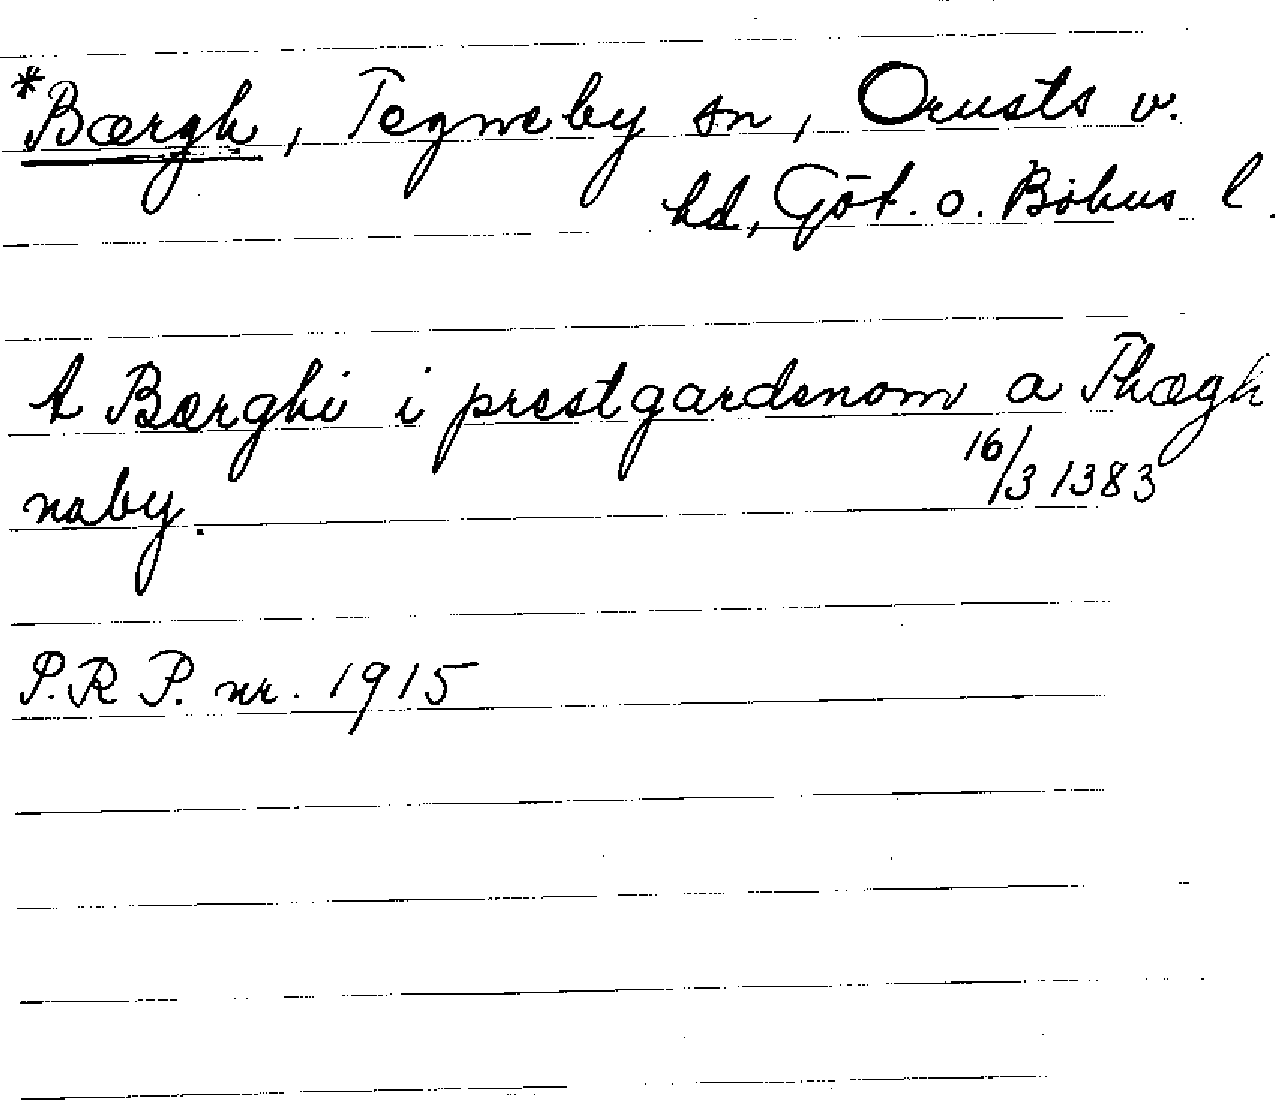 *Bærgh, Tegneby sn, Orusts v.
hd, Göt. o. Bohus l.
A Bærghi i prestgardenom a Thægh
naby. 16/3 1383
P.R P. nr. 1915